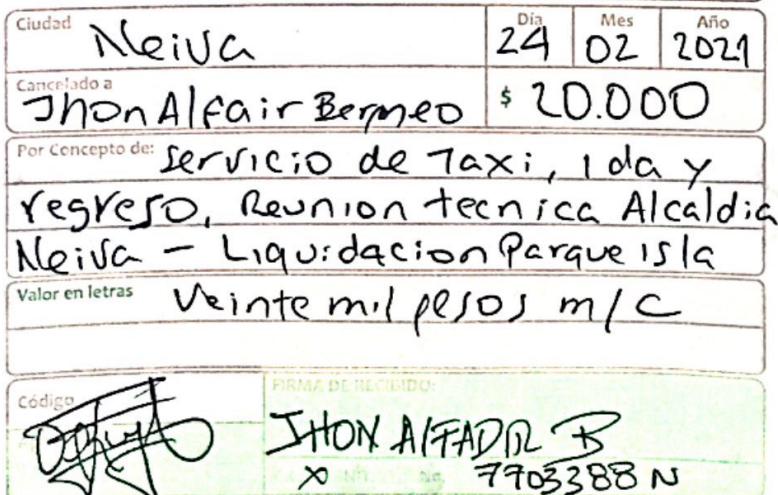 Ciudad Neiva Día 24 Mes 02 Año 2021
Cancelado a Jhon Alfair Bermeo $ 20.000
Por Concepto de: Servicio de Taxi, Ida y
regreso, Reunion tecnica Alcaldia
Neiva - Liquidacion Parque isla
Valor en letras Veinte mil pesos m/c
Código FIRMA DE RECIBIDO:
JHON AlFADIR B
7703388 N